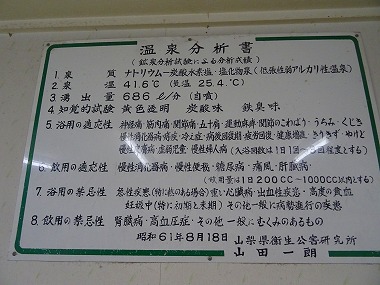 温泉分析書
(鉱泉分析試験による分析成績)
1. 泉質 ナトリウム—炭酸水素塩・塩化物泉(低張性弱アルカリ性温泉)
2. 泉温 41.6℃(気温 25.4℃)
3. 湧出量 686ℓ/分(自噴)
4. 知覚的試験 黄色透明 炭酸味 鉄臭味
5. 浴用の適応性 神経痛・筋肉痛・関節痛・五十肩・運動麻痺・関節のこわばり・うちみ・くじき
慢性消化器病・痔疾・冷え症・病後回復期・疲労回復・健康増進・きりきず・やけど
慢性皮膚病・虚弱児童・慢性婦人病(入浴回数は1日1回〜 回程度とする)
6. 飲用の適応性 慢性消化器病・慢性便秘・糖尿病・痛風・肝臓病
(飲用量は1日200CC〜1000CC以内とする)
7. 浴用の禁忌性 急性疾患(特に熱のある場合)重い心臓病・出血性疾患・高度の貧血
妊娠中(特に初期と末期)その他一般に病勢進行の疾患
8. 飲用の禁忌性 腎臓病・高血圧症・その他一般にむくみのあるもの
昭和61年8月18日 山梨県衛生公害研究所
山田一朗